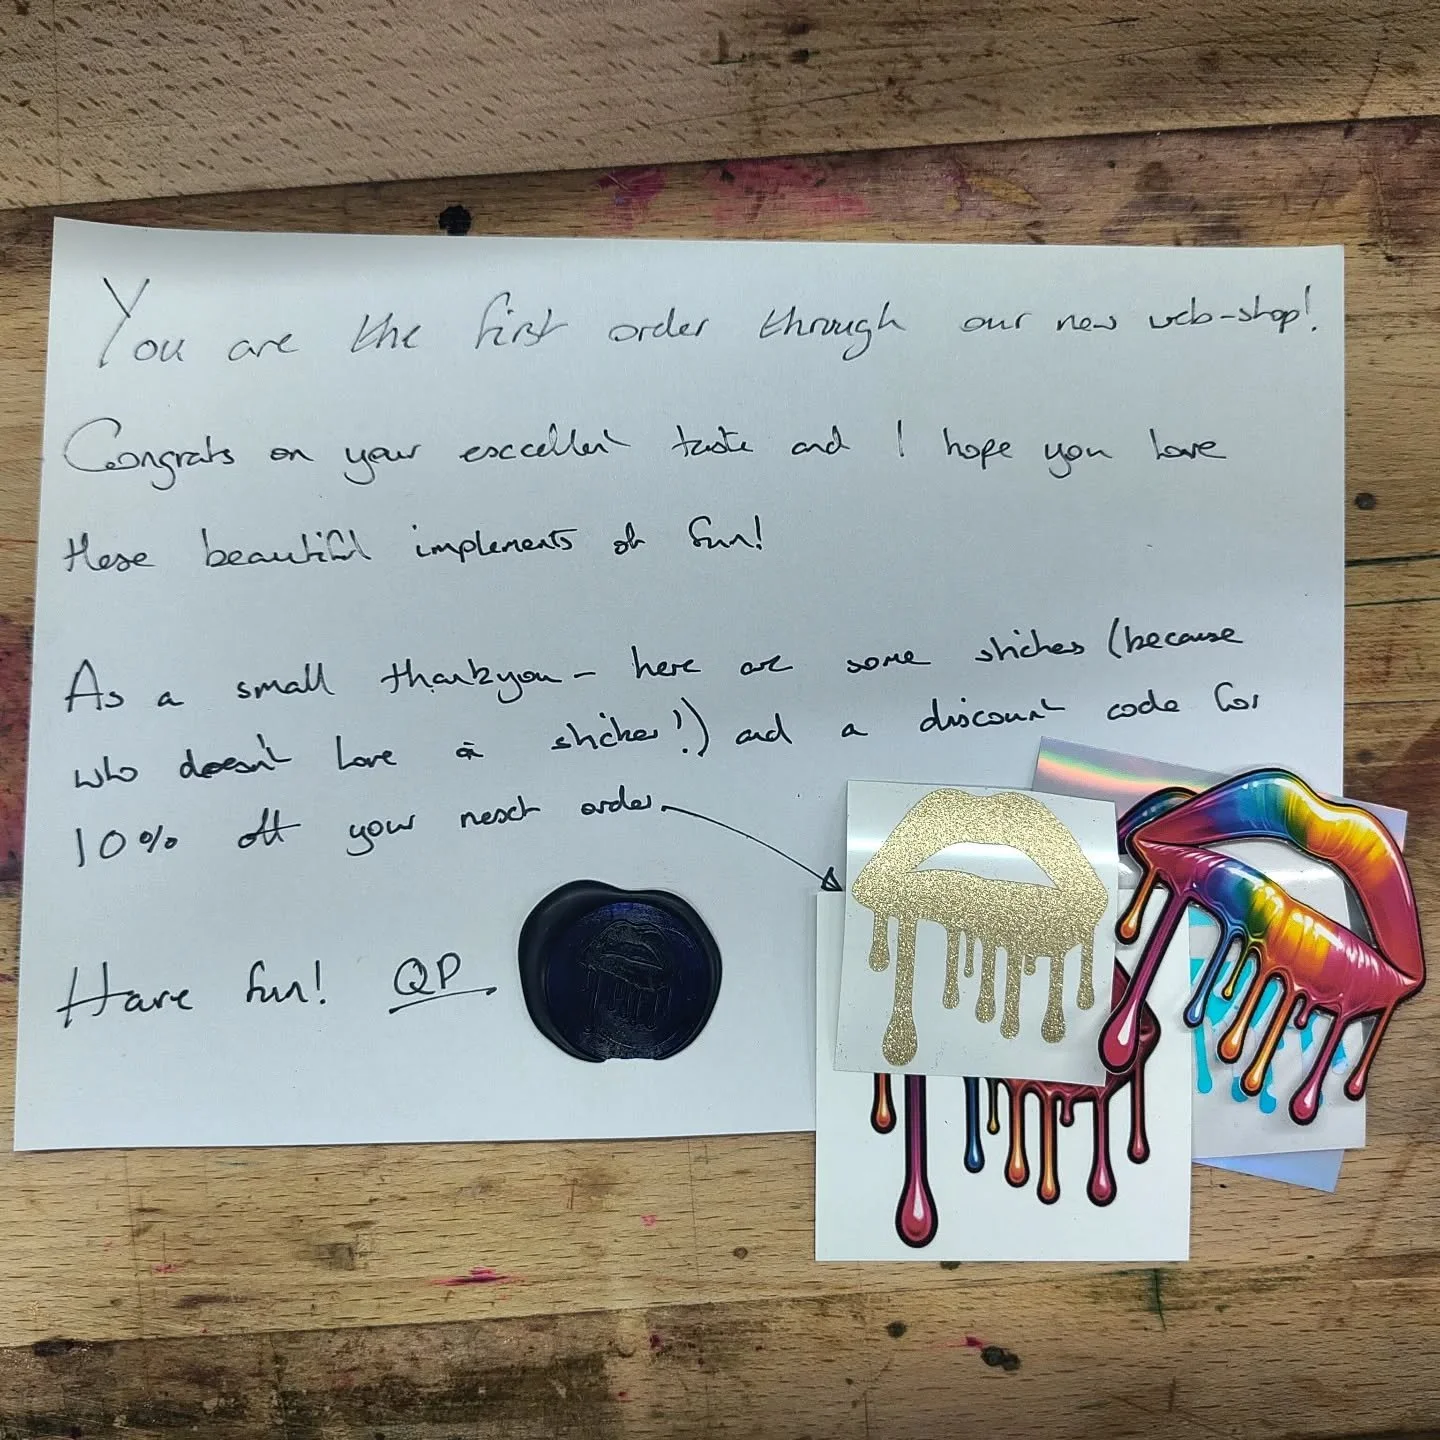 You are the first order through our new web-shop!
Congrats on your excellent taste and I hope you love
these beautiful implements of fun!
As a small thankyou - here are some stickers (because
who doesn't love a sticker!) and a discount code for
10% off your next order.
Have fun! QP.